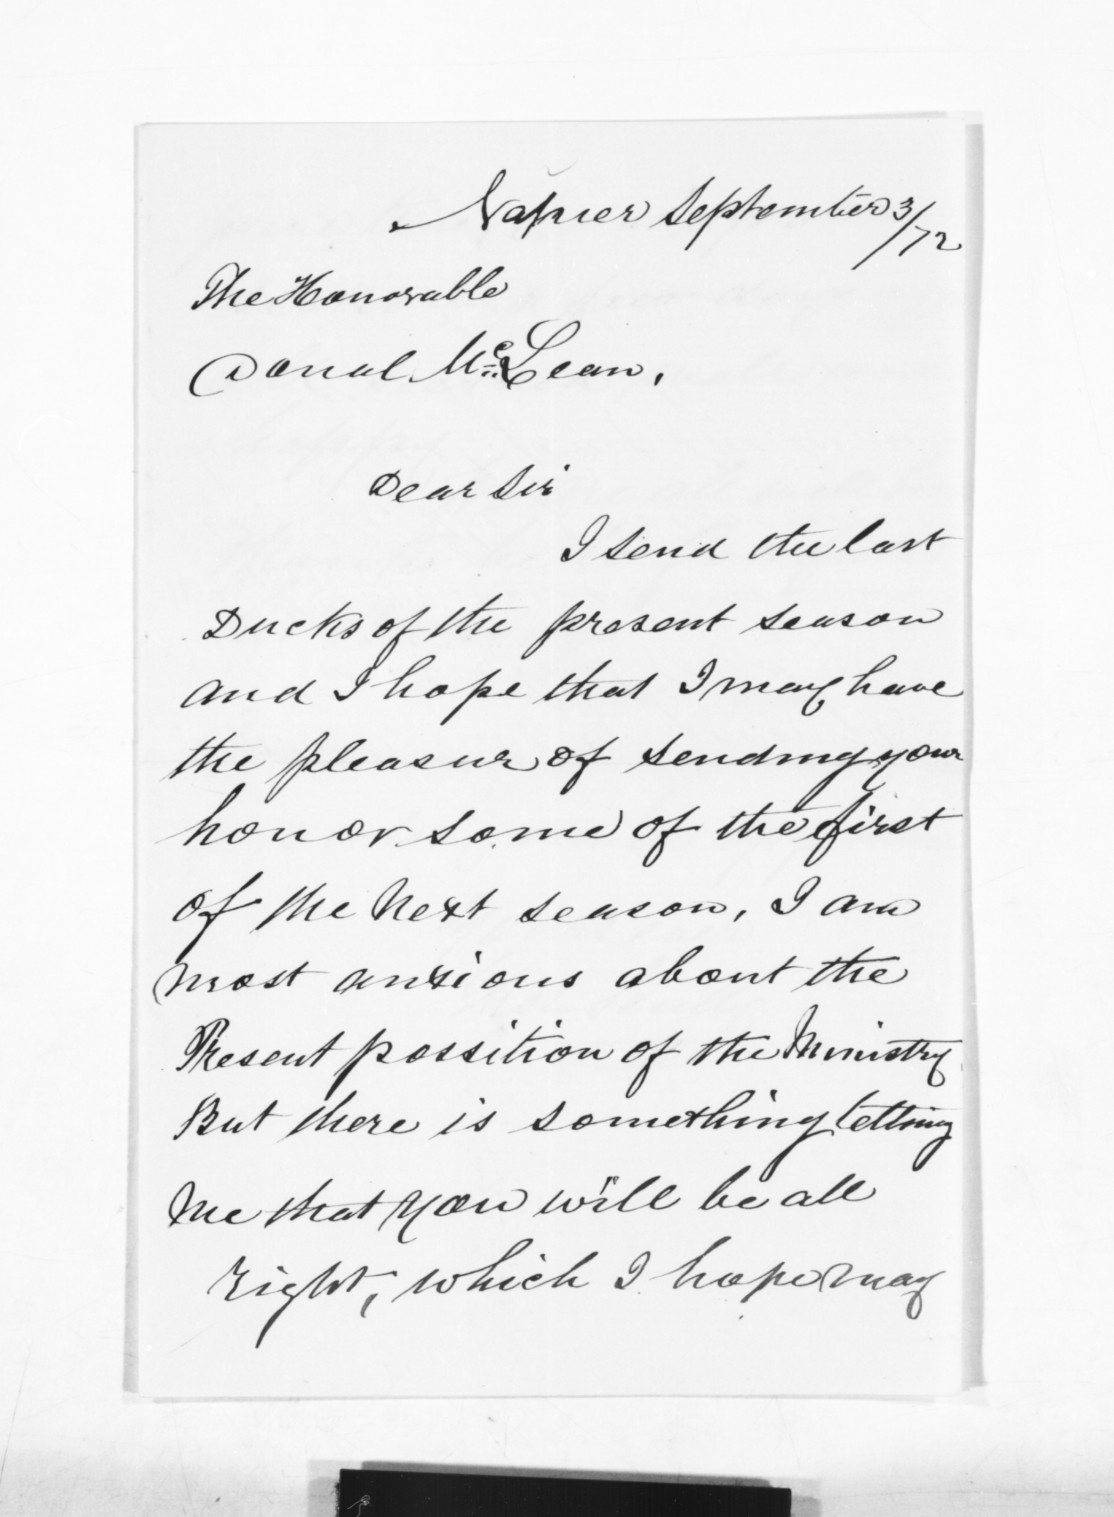 Napier September 3/72
The Honorable
Donal McLean,
Dear Sir
I send the last
Ducks of the present season
and I hope that I may have
the pleasur of sending your
honor some of the first
of the Next season, I am
most anxious about the
Present possition of the Ministry
But there is something telling
Me that you will be all
right, which I hope may